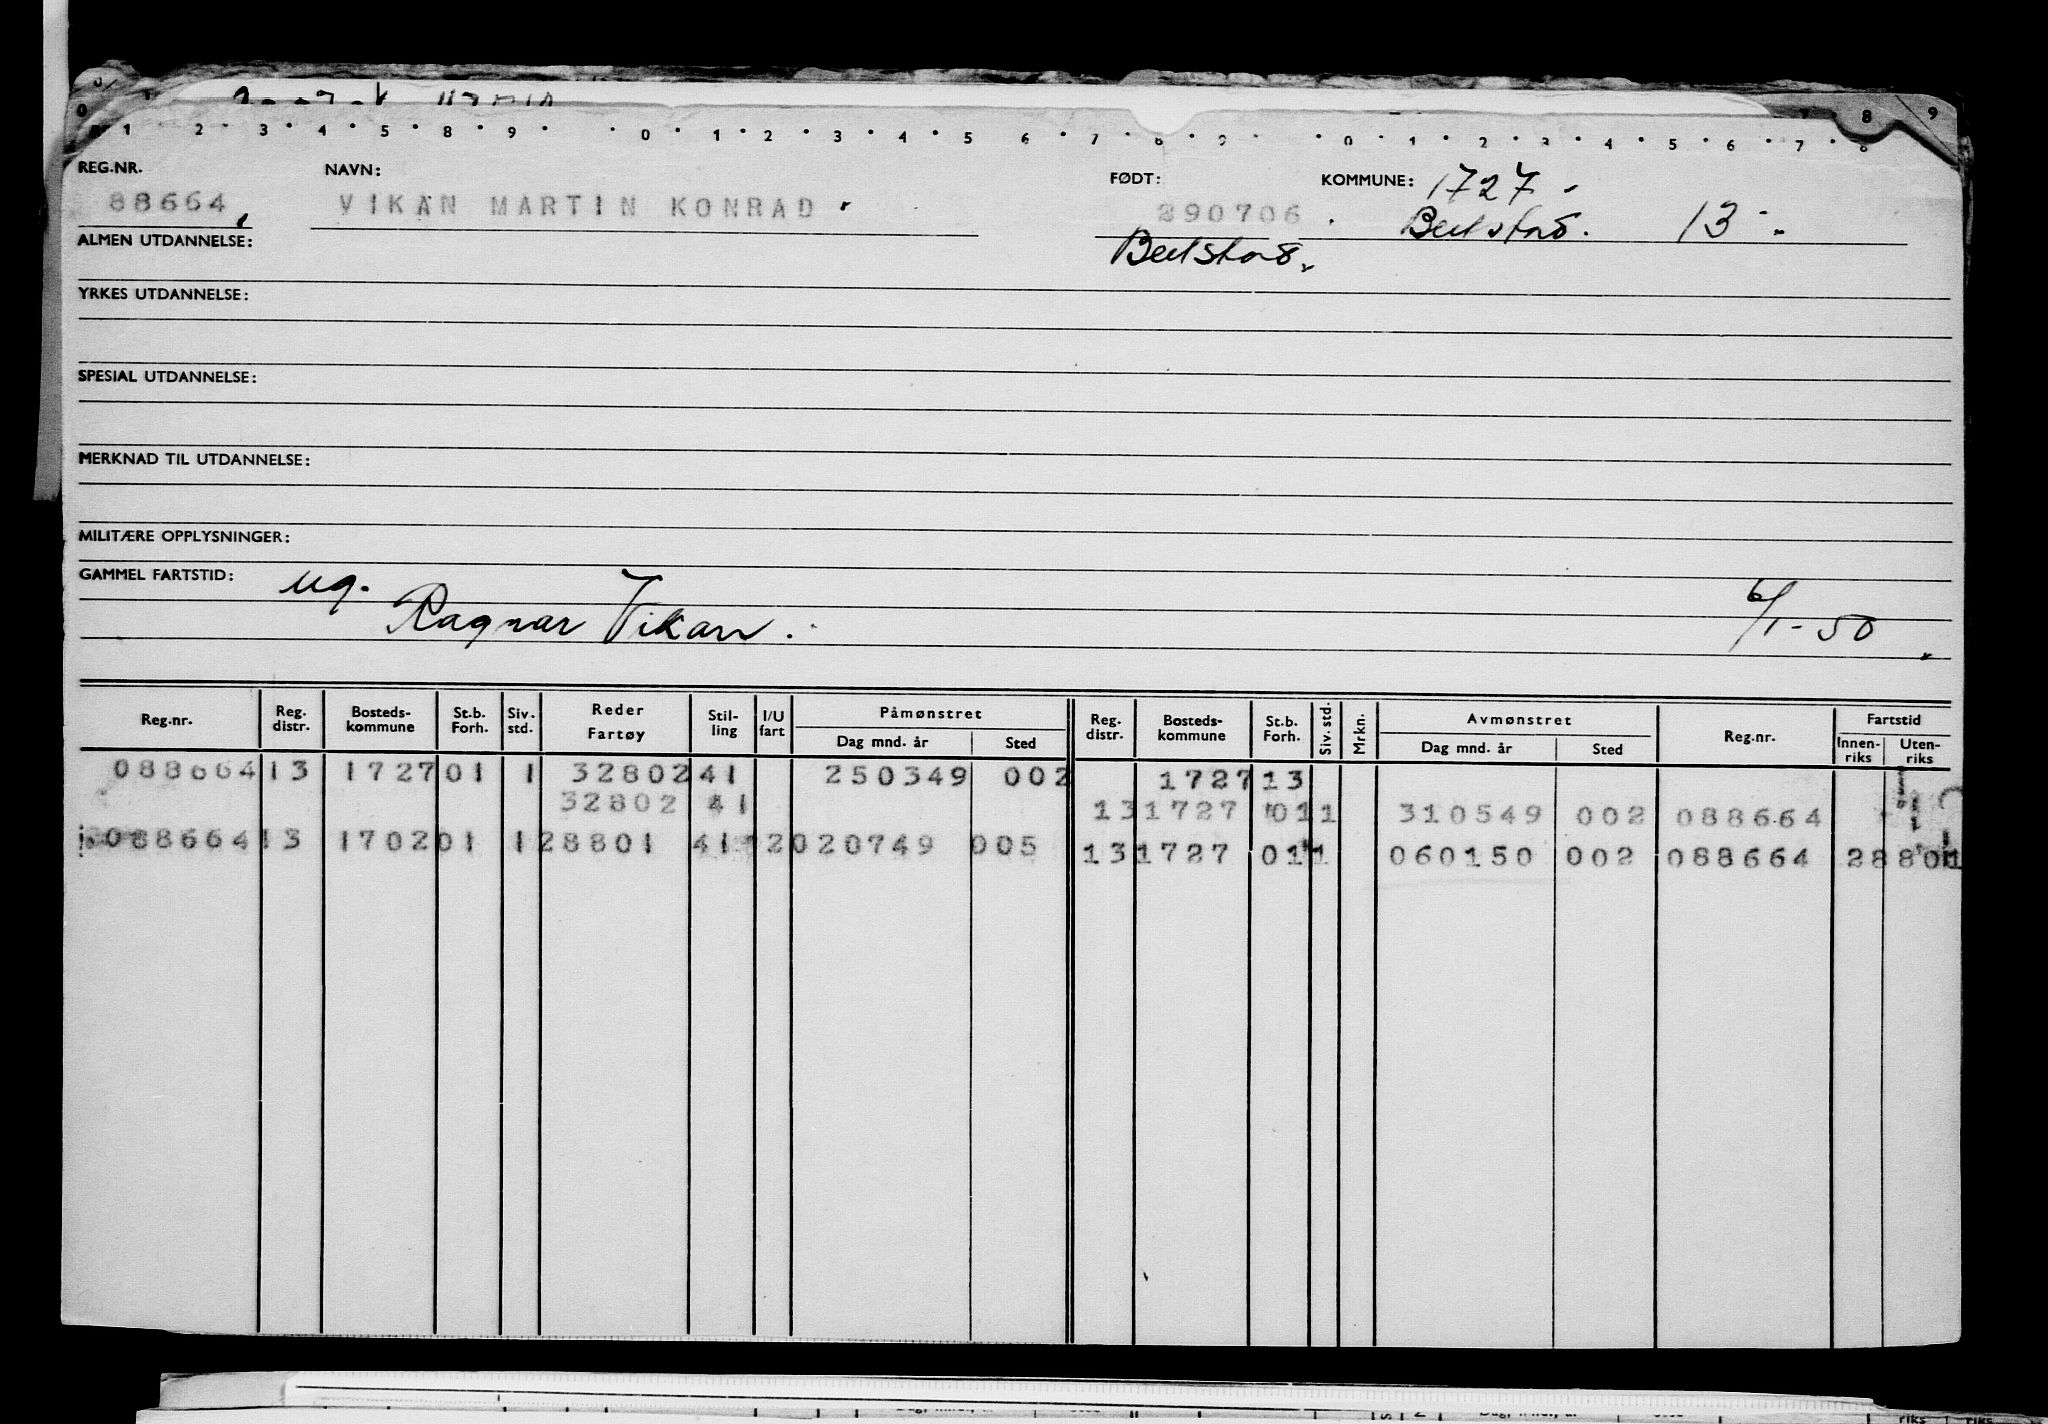 1 2 3 4 5 8 9 0 1 2 3 4 5 6 7 8 9 0 1 2 3 4 5 6 7 8 9
REG.NR. NAVN: FØDT: KOMMUNE: 1727
88664 VIKAN MARTIN KONRAD 290706 Beitstad. 13
ALMEN UTDANNELSE: Beitstad.
YRKES UTDANNELSE:
SPESIAL UTDANNELSE:
MERKNAD TIL UTDANNELSE:
MILITÆRE OPPLYSNINGER:
GAMMEL FARTSTID: ug.
Ragnar Vikan. 6/1-50
Reg.nr. Reg. distr. Bosteds-kommune St.b. Forh. Siv. std. Reder Fartøy Stil-ling I/U fart Påmønstret Dag mnd. år Sted Reg. distr. Bosteds-kommune St.b. Forh. Siv. std. Mrkn. Avmønstret Dag mnd. år Sted Reg.nr. Fartstid Innen-riks Uten-riks
088664 13 1727 01 1 32802 41 250349 002 1727 13
32802 41 13 1727 01 1 310549 002 088664
088664 13 1702 01 1 28801 41 2 020749 005 13 1727 01 1 060150 002 088664 28801